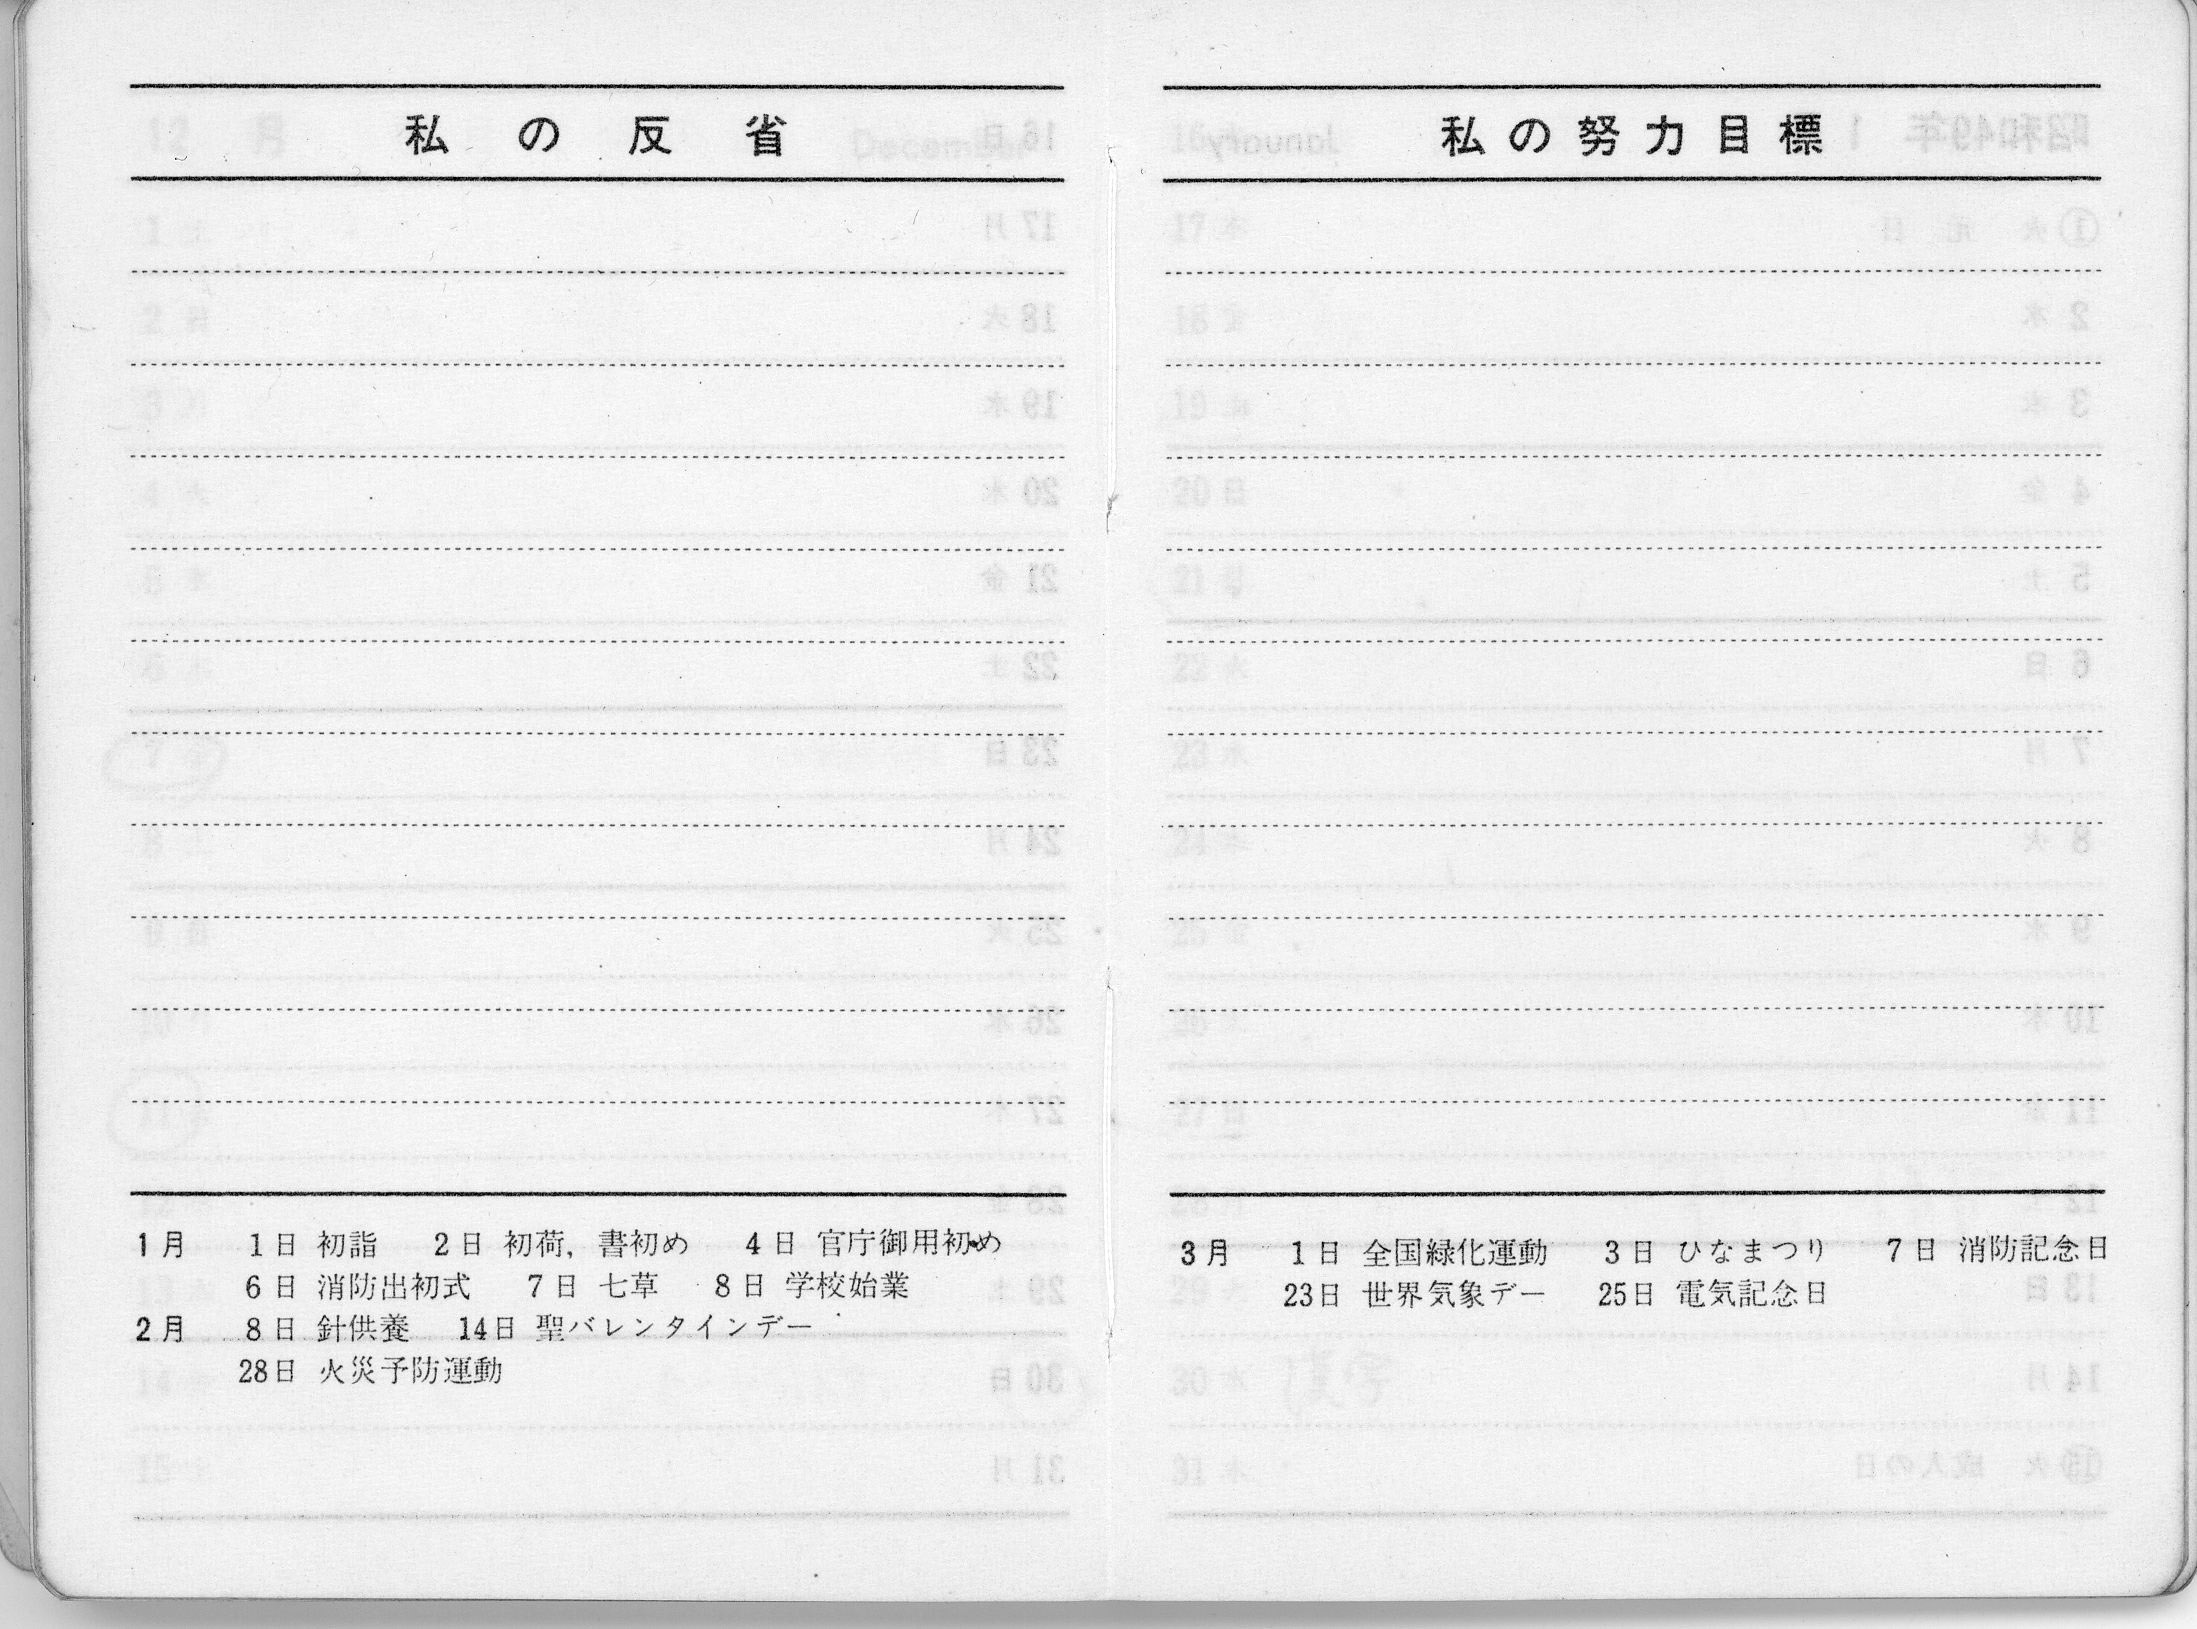 私の反省
1月 1日 初詣 2日 初荷，書初め 4日 官庁御用初め
6日 消防出初式 7日 七草 8日 学校始業
2月 8日 針供養 14日 聖バレンタインデー
28日 火災予防運動
私の努力目標
3月 1日 全国緑化運動 3日 ひなまつり 7日 消防記念日
23日 世界気象デー 25日 電気記念日